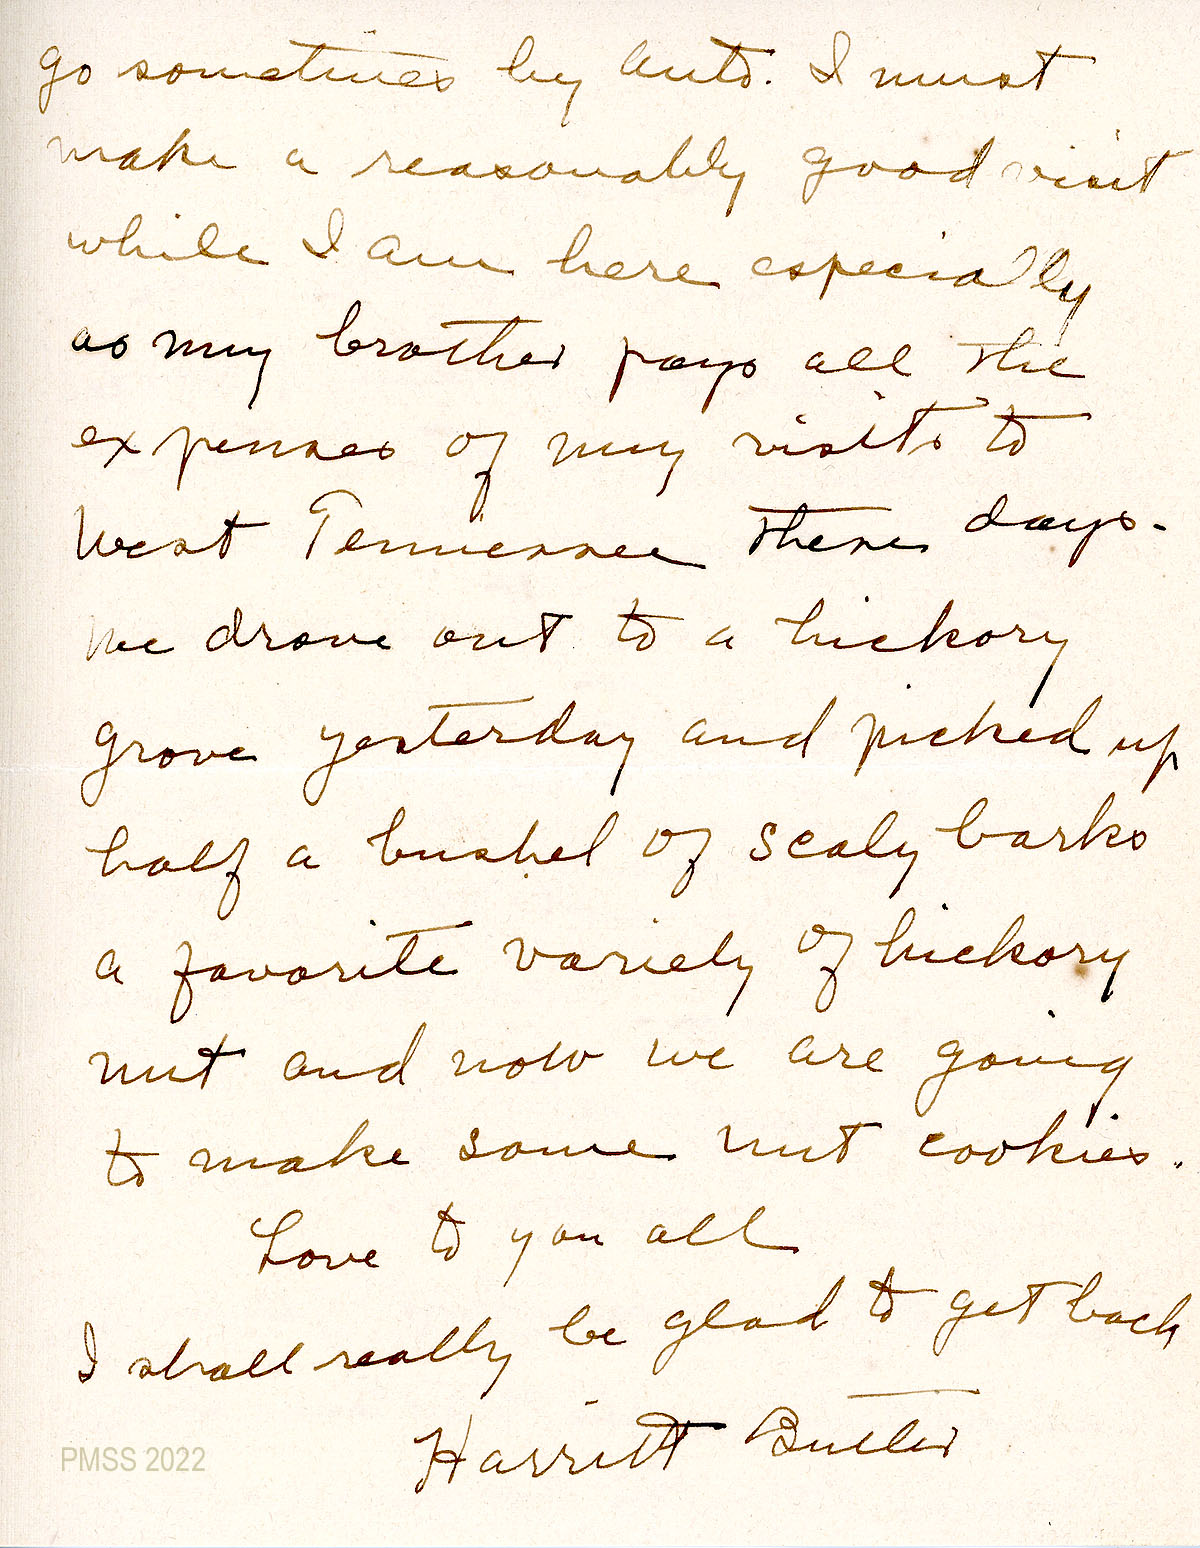 go sometimes by auto. I must
make a reasonably good visit
while I am here especially
as my brother pays all the
expenses of my visits to
West Tennessee these days.
We drove out to a hickory
grove yesterday and picked up
half a bushel of scaly barks
a favorite variety of hickory
nut and now we are going
to make some nut cookies.
Love to you all
I shall really be glad to get back
Harriett Butler
PMSS 2022